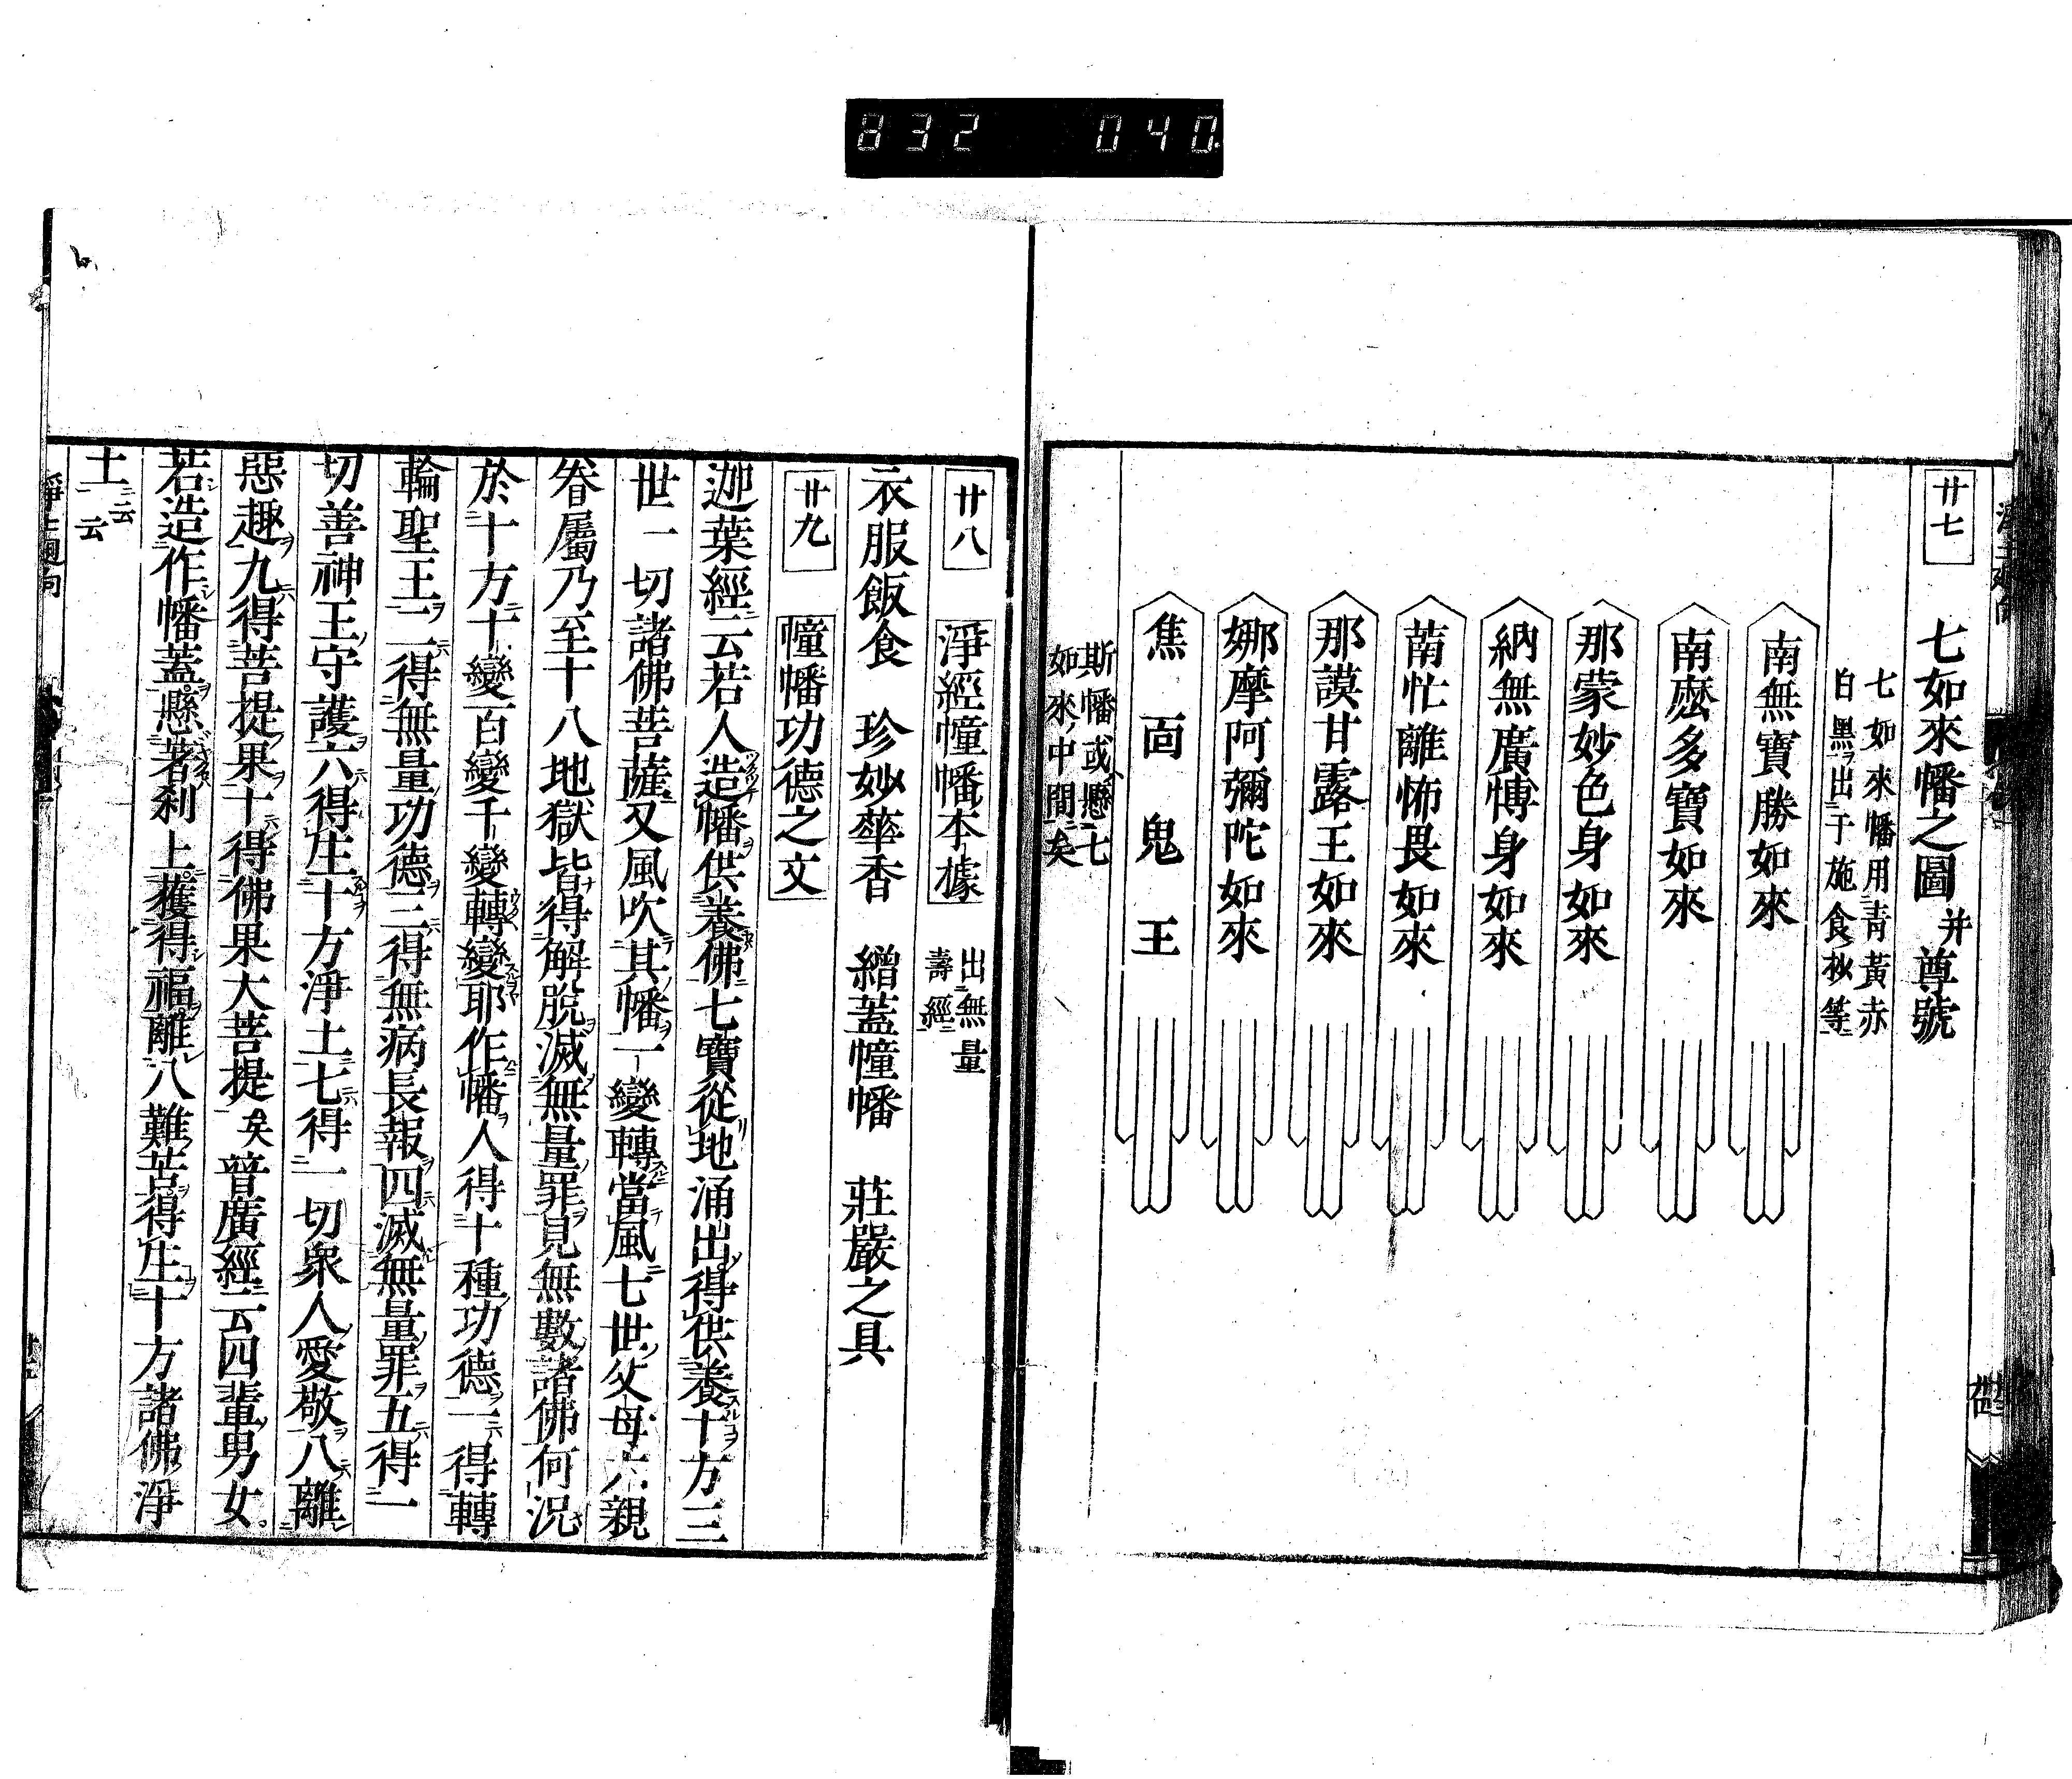 832 040
廿七 七如來幡之圖 并 尊號
七如來幡用青黃赤
白黑出于施食抄等
南無寶勝如來
南麽多寶如來
那蒙妙色身如來
納無廣愽身如來
蓾忙離怖畏如來
那謨甘露王如來
娜摩阿彌陀如來
焦面鬼王
斯幡或懸七
如來中間矣
廿八 淨經幢幡本據 出無量
壽經
衣服飯食 珍妙華香 繒蓋幢幡 莊嚴之具
廿九 幢幡功德之文
迦葉經云若人造幡供養佛七寶從地涌出得供養十方三
世一切諸佛菩薩又風吹其幡一變轉當風七世父母六親
眷屬乃至十八地獄皆得解脫滅無量罪見無數諸佛何況
於十方十變百變千變轉變耶作幡人得十種功德一得轉
輪聖王二得無量功德三得無病長報四滅無量罪五得一
切善神王守護六得生十方淨土七得一切衆人愛敬八離
惡趣九得菩提果十得佛果大菩提矣普廣經云四輩男女
若造作幡蓋懸著刹上獲得福離八難苦得生十方諸佛淨
土云云